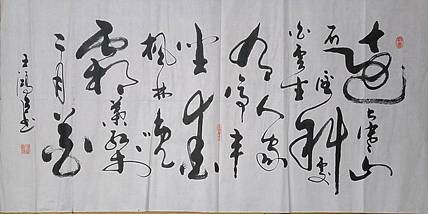 遠上寒山
石徑斜
白雲生處
有人家
停車
坐愛
楓林晚
霜葉紅於
二月花